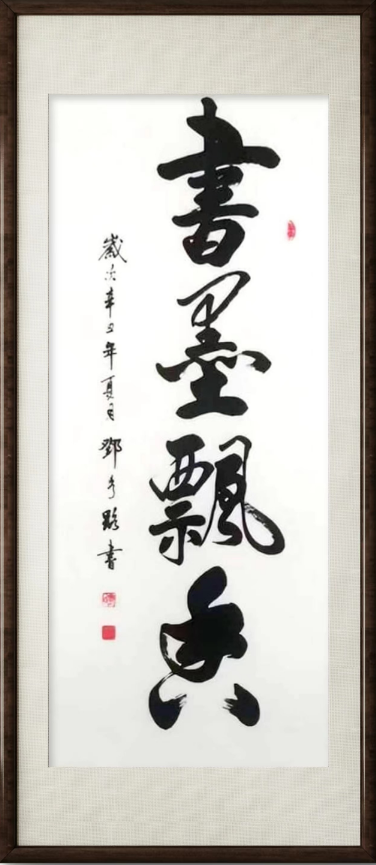 書墨飄香
歲次辛丑年夏月鄧書